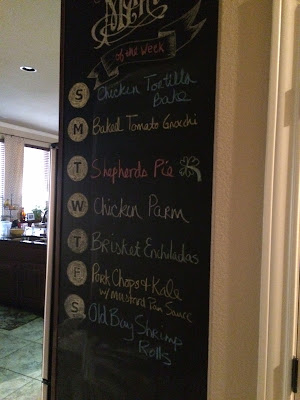 Menu
of the Week
S Chicken Tortilla
Bake
M Baked Tomato Gnocchi
T Shepherds Pie
W Chicken Parm
T Brisket Enchiladas
F Pork Chops & Kale
w/ Mustard Pan Sauce
S Old Bay Shrimp
Rolls